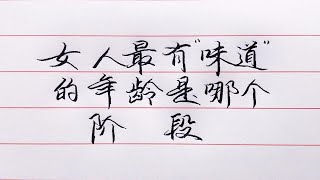 女人最有“味道”
的年龄是哪个
阶段